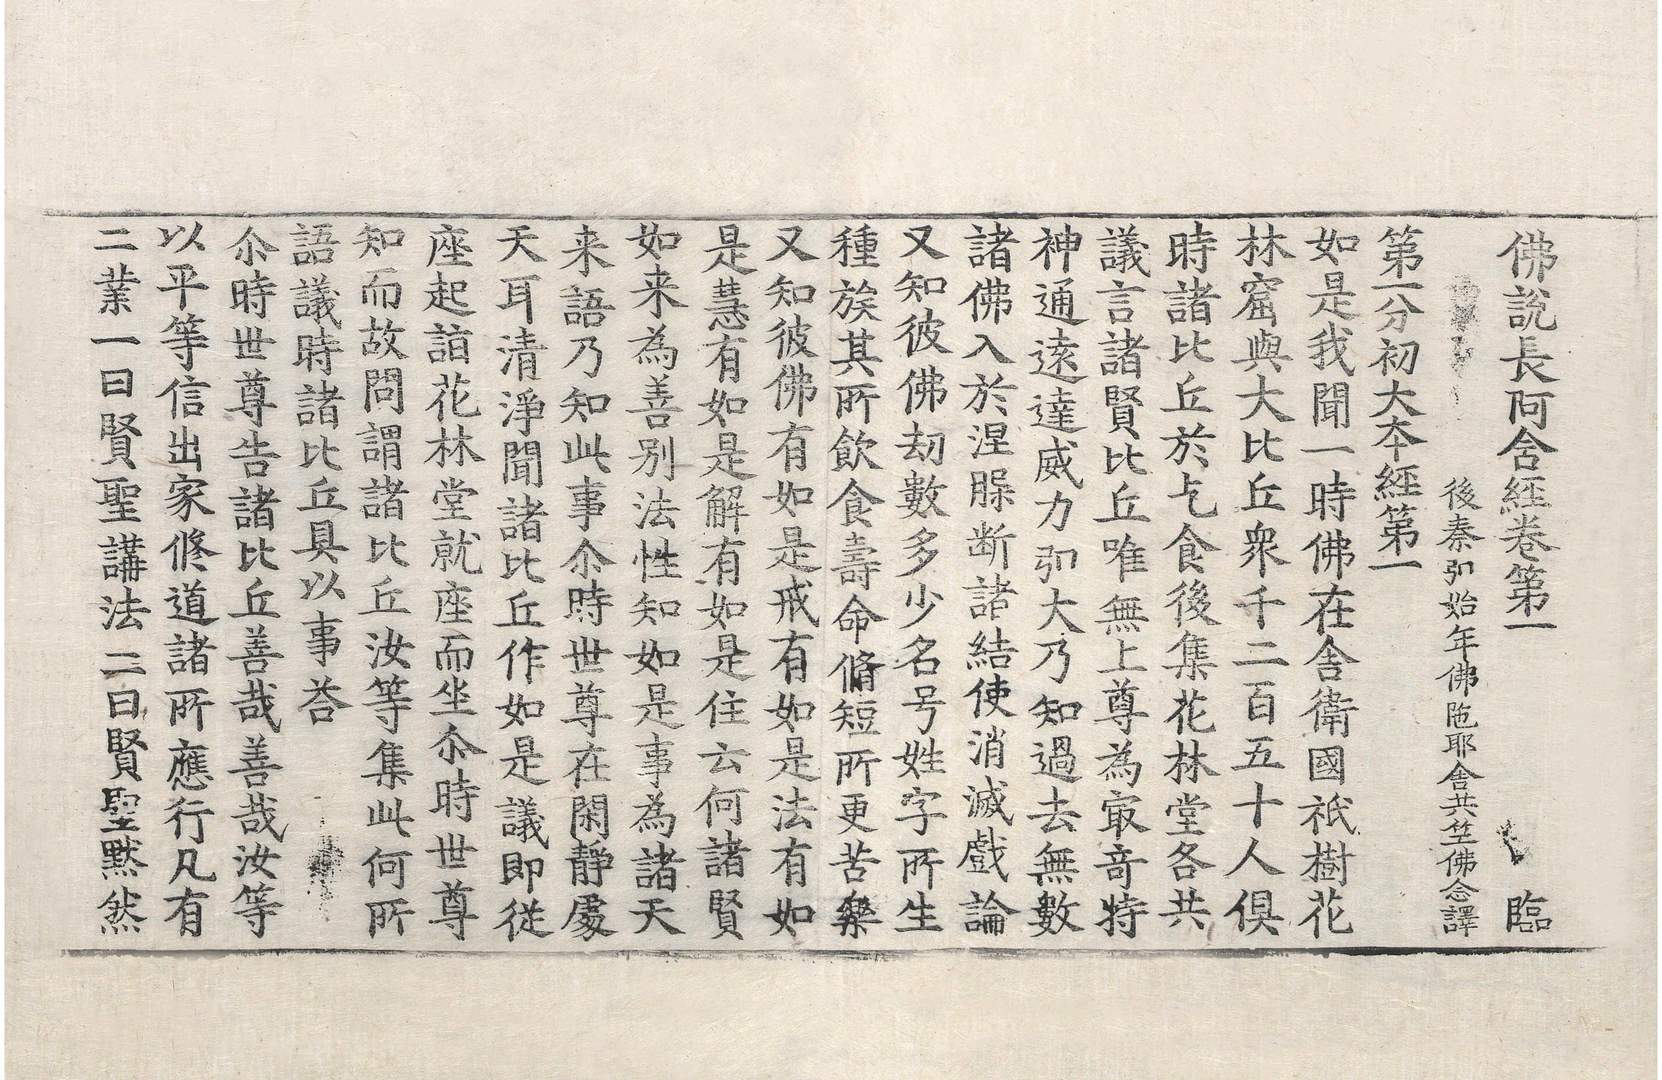 佛說長阿含經卷第一　臨
後秦弘始年佛陁耶舍共竺佛念譯
第一分初大本經第一
如是我聞一時佛在舍衛國祇樹花
林窟與大比丘衆千二百五十人俱
時諸比丘於乞食後集花林堂各共
議言諸賢比丘唯無上尊為㝡奇特
神通遠達威力弘大乃知過去無數
諸佛入於涅槃断諸結使消滅戲論
又知彼佛劫數多少名号姓字所生
種族其所飲食壽命脩短所更苦樂
又知彼佛有如是戒有如是法有如
是慧有如是解有如是住云何諸賢
如来為善別法性知如是事為諸天
来語乃知此事尒時世尊在閑靜處
天耳清淨聞諸比丘作如是議即従
座起詣花林堂就座而坐尒時世尊
知而故問謂諸比丘汝等集此何所
語議時諸比丘具以事荅
尒時世尊告諸比丘善哉善哉汝等
以平等信出家修道諸所應行凡有
二業一曰賢聖講法二曰賢聖默然